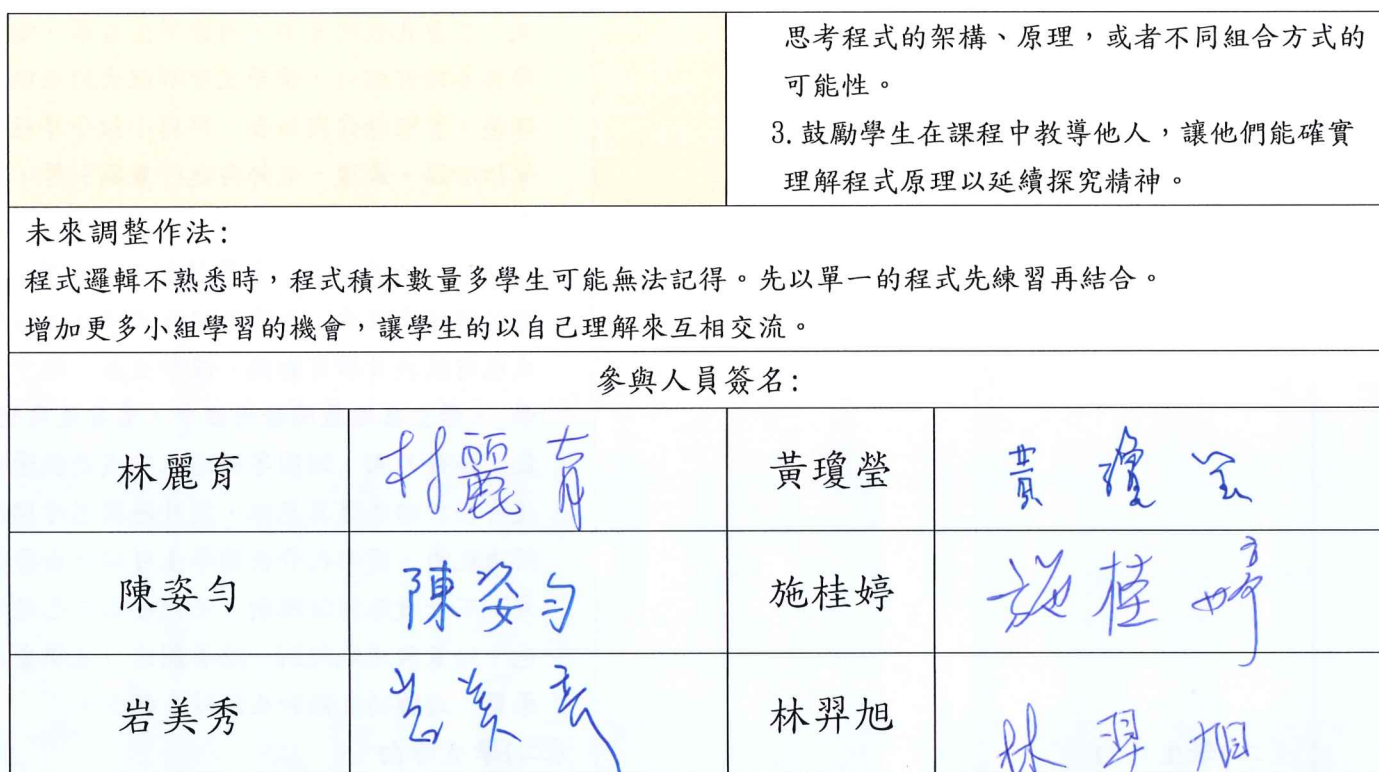 思考程式的架構、原理，或者不同組合方式的
可能性。
3.鼓勵學生在課程中教導他人，讓他們能確實
理解程式原理以延續探究精神。
未來調整作法:
程式邏輯不熟悉時，程式積木數量多學生可能無法記得。先以單一的程式先練習再結合。
增加更多小組學習的機會，讓學生的以自己理解來互相交流。
參與人員簽名:
林麗育 林麗育 黃瓊瑩 黃瓊瑩
陳姿勻 陳姿勻 施桂婷 施桂婷
岩美秀 岩美秀 林羿旭 林羿旭